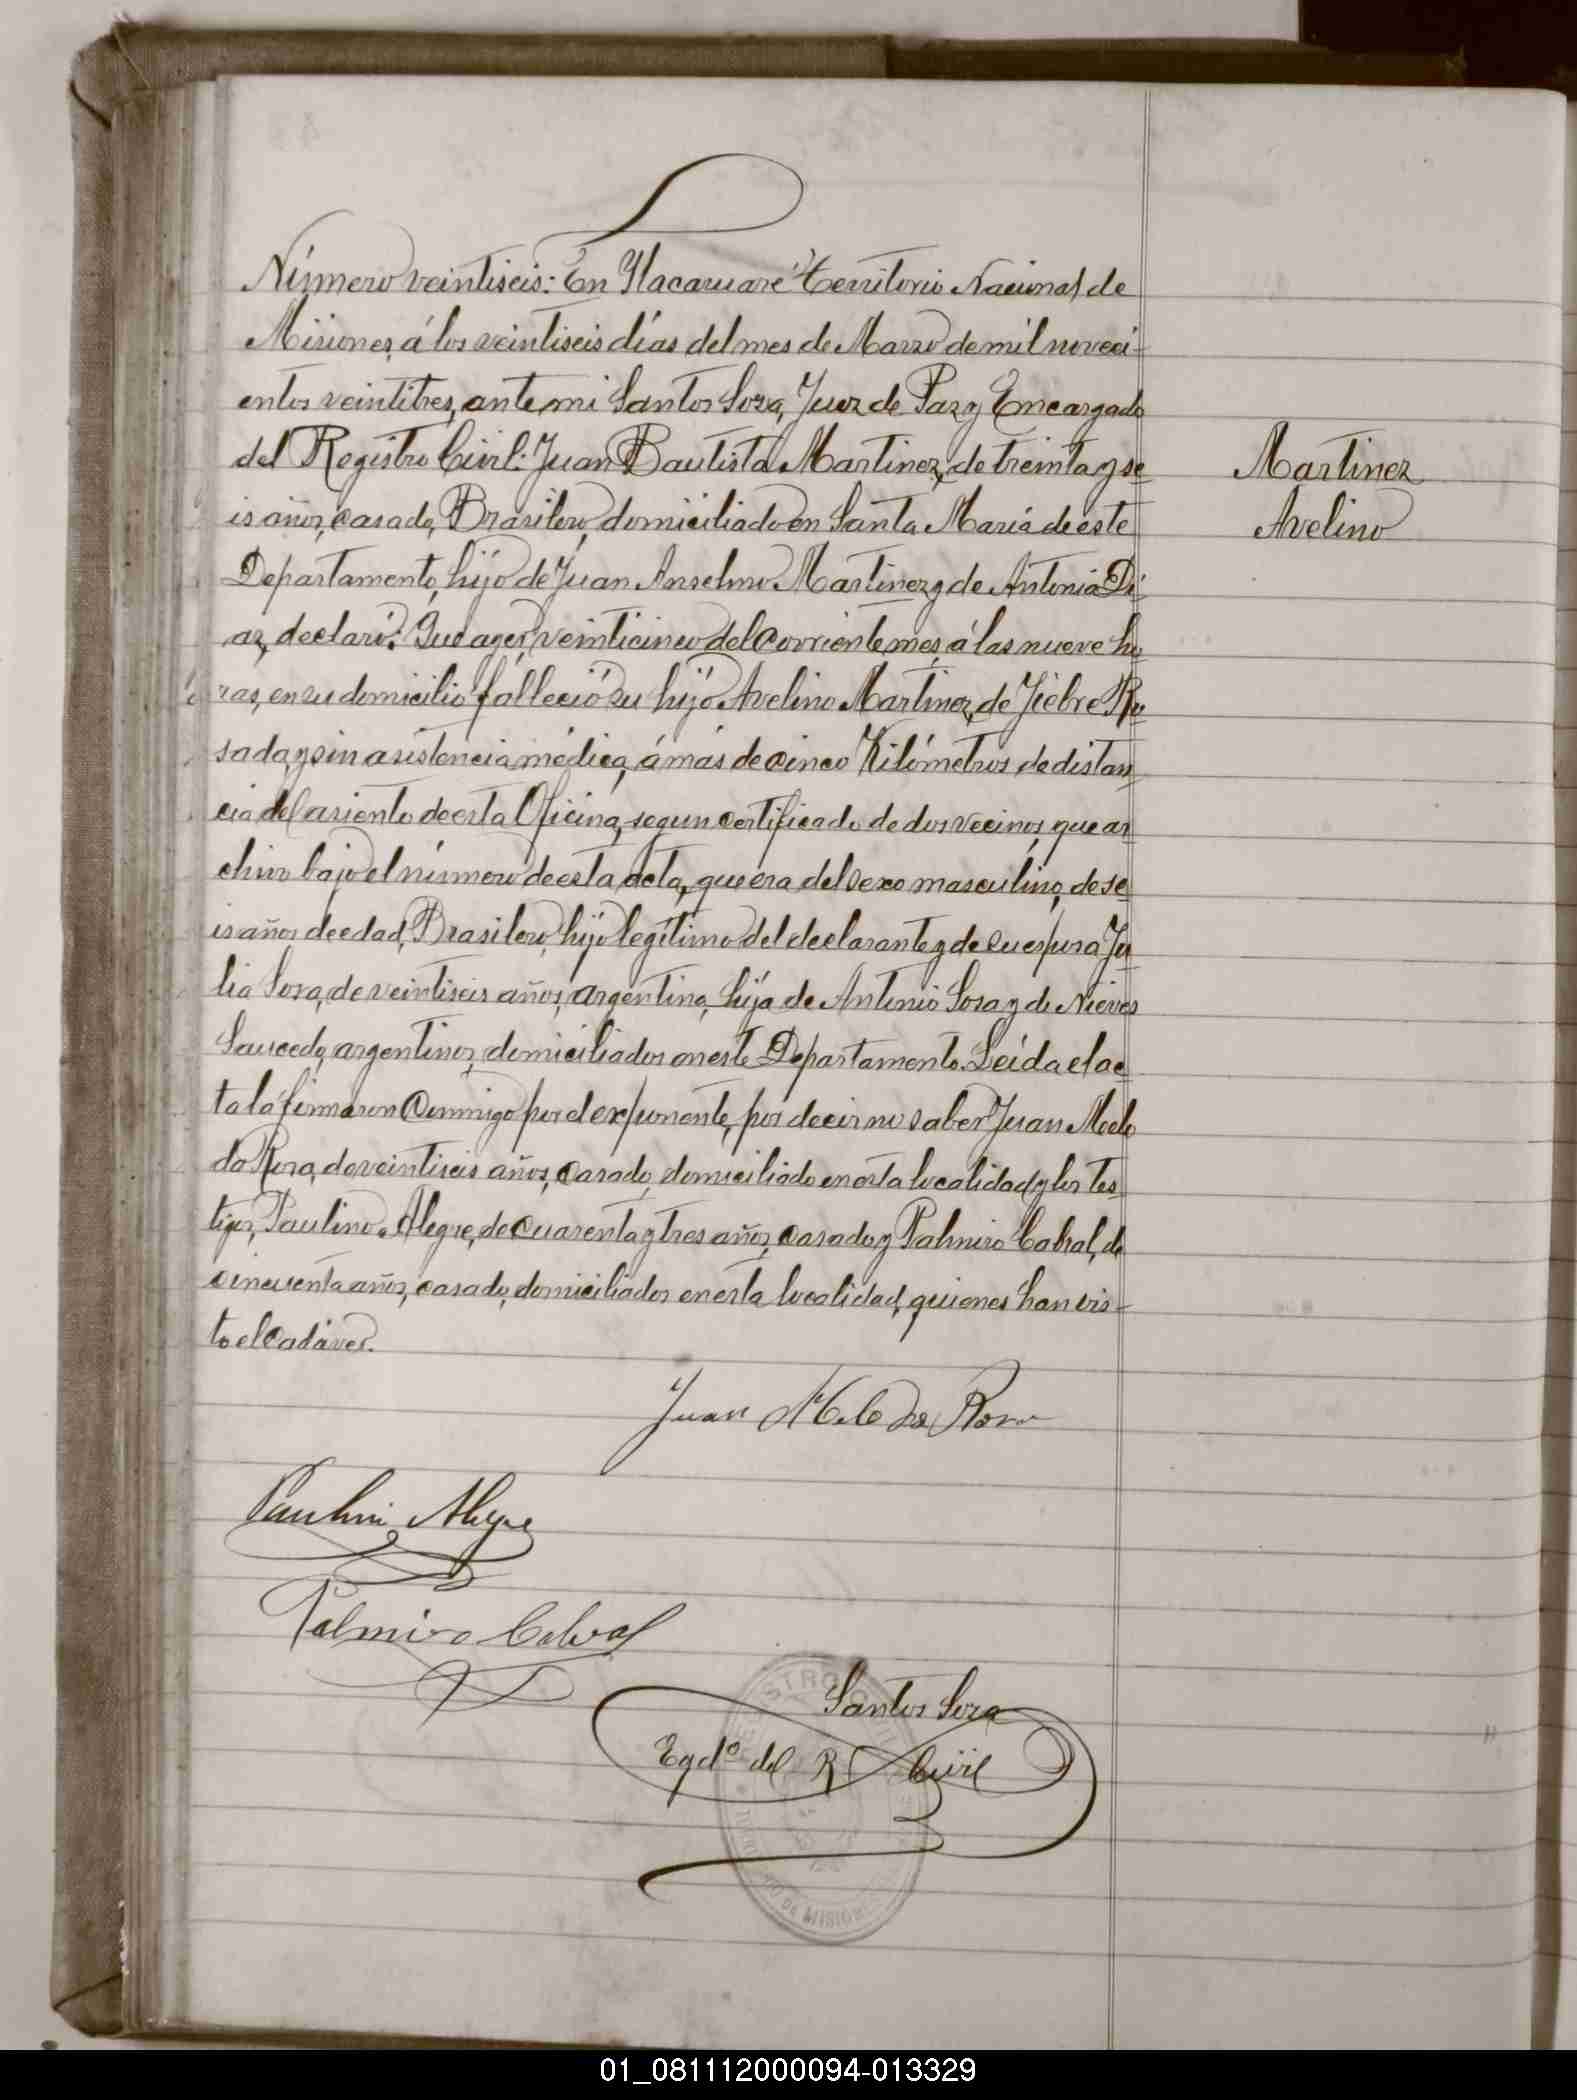 Número veintiseis: En Itacaruaré Territorio Nacional de
Misiones, á los veintiseis días del mes de Marzo de mil noveci-
entos veintitres, ante mi Santos Sosa, Juez de Paz y Encargado
del Registro Civil: Juan Bautista Martinez, de treinta y se
is años, casado, Brasilero, domiciliado en Santa María de este
Departamento, hijo de Juan Anselmo Martinez y de Antonia Di
az, declaró: Que ayer, veinticinco del corriente mes, á las nueve ho
ras, en su domicilio falleció su hijo Avelino Martinez, de Fiebre Ro
sada, y sin asistencia médica, á más de cinco Kilómetros de distan
cia del asiento de esta Oficina, segun certificado de dos vecinos, que ar
chivo bajo el número de esta acta, que era del sexo masculino, de se
is años de edad, Brasilero, hijo legítimo del declarante y de su esposa Ju
lia Sosa, de veintiseis años, argentina, hija de Antonio Sosa y de Nieves
Saucedo, argentinos, domiciliados en este Departamento. Leída el ac
ta la firmaron conmigo por el exponente, por decir no saber Juan Melo
da Rosa, de veintiseis años, casado, domiciliado en esta localidad y los tes
tigos, Paulino Alegre, de cuarenta y tres años, casado y Palmiro Cabral, de
cincuenta años, casado, domiciliados en esta localidad, quienes han vis-
to el cadáver.
Martinez
Avelino
Juan Melo da Rosa
Paulino Alegre
Palmiro Cabral
Santos Sosa
Egdo del R Civil
DE MISIONES
01_081112000094-013329